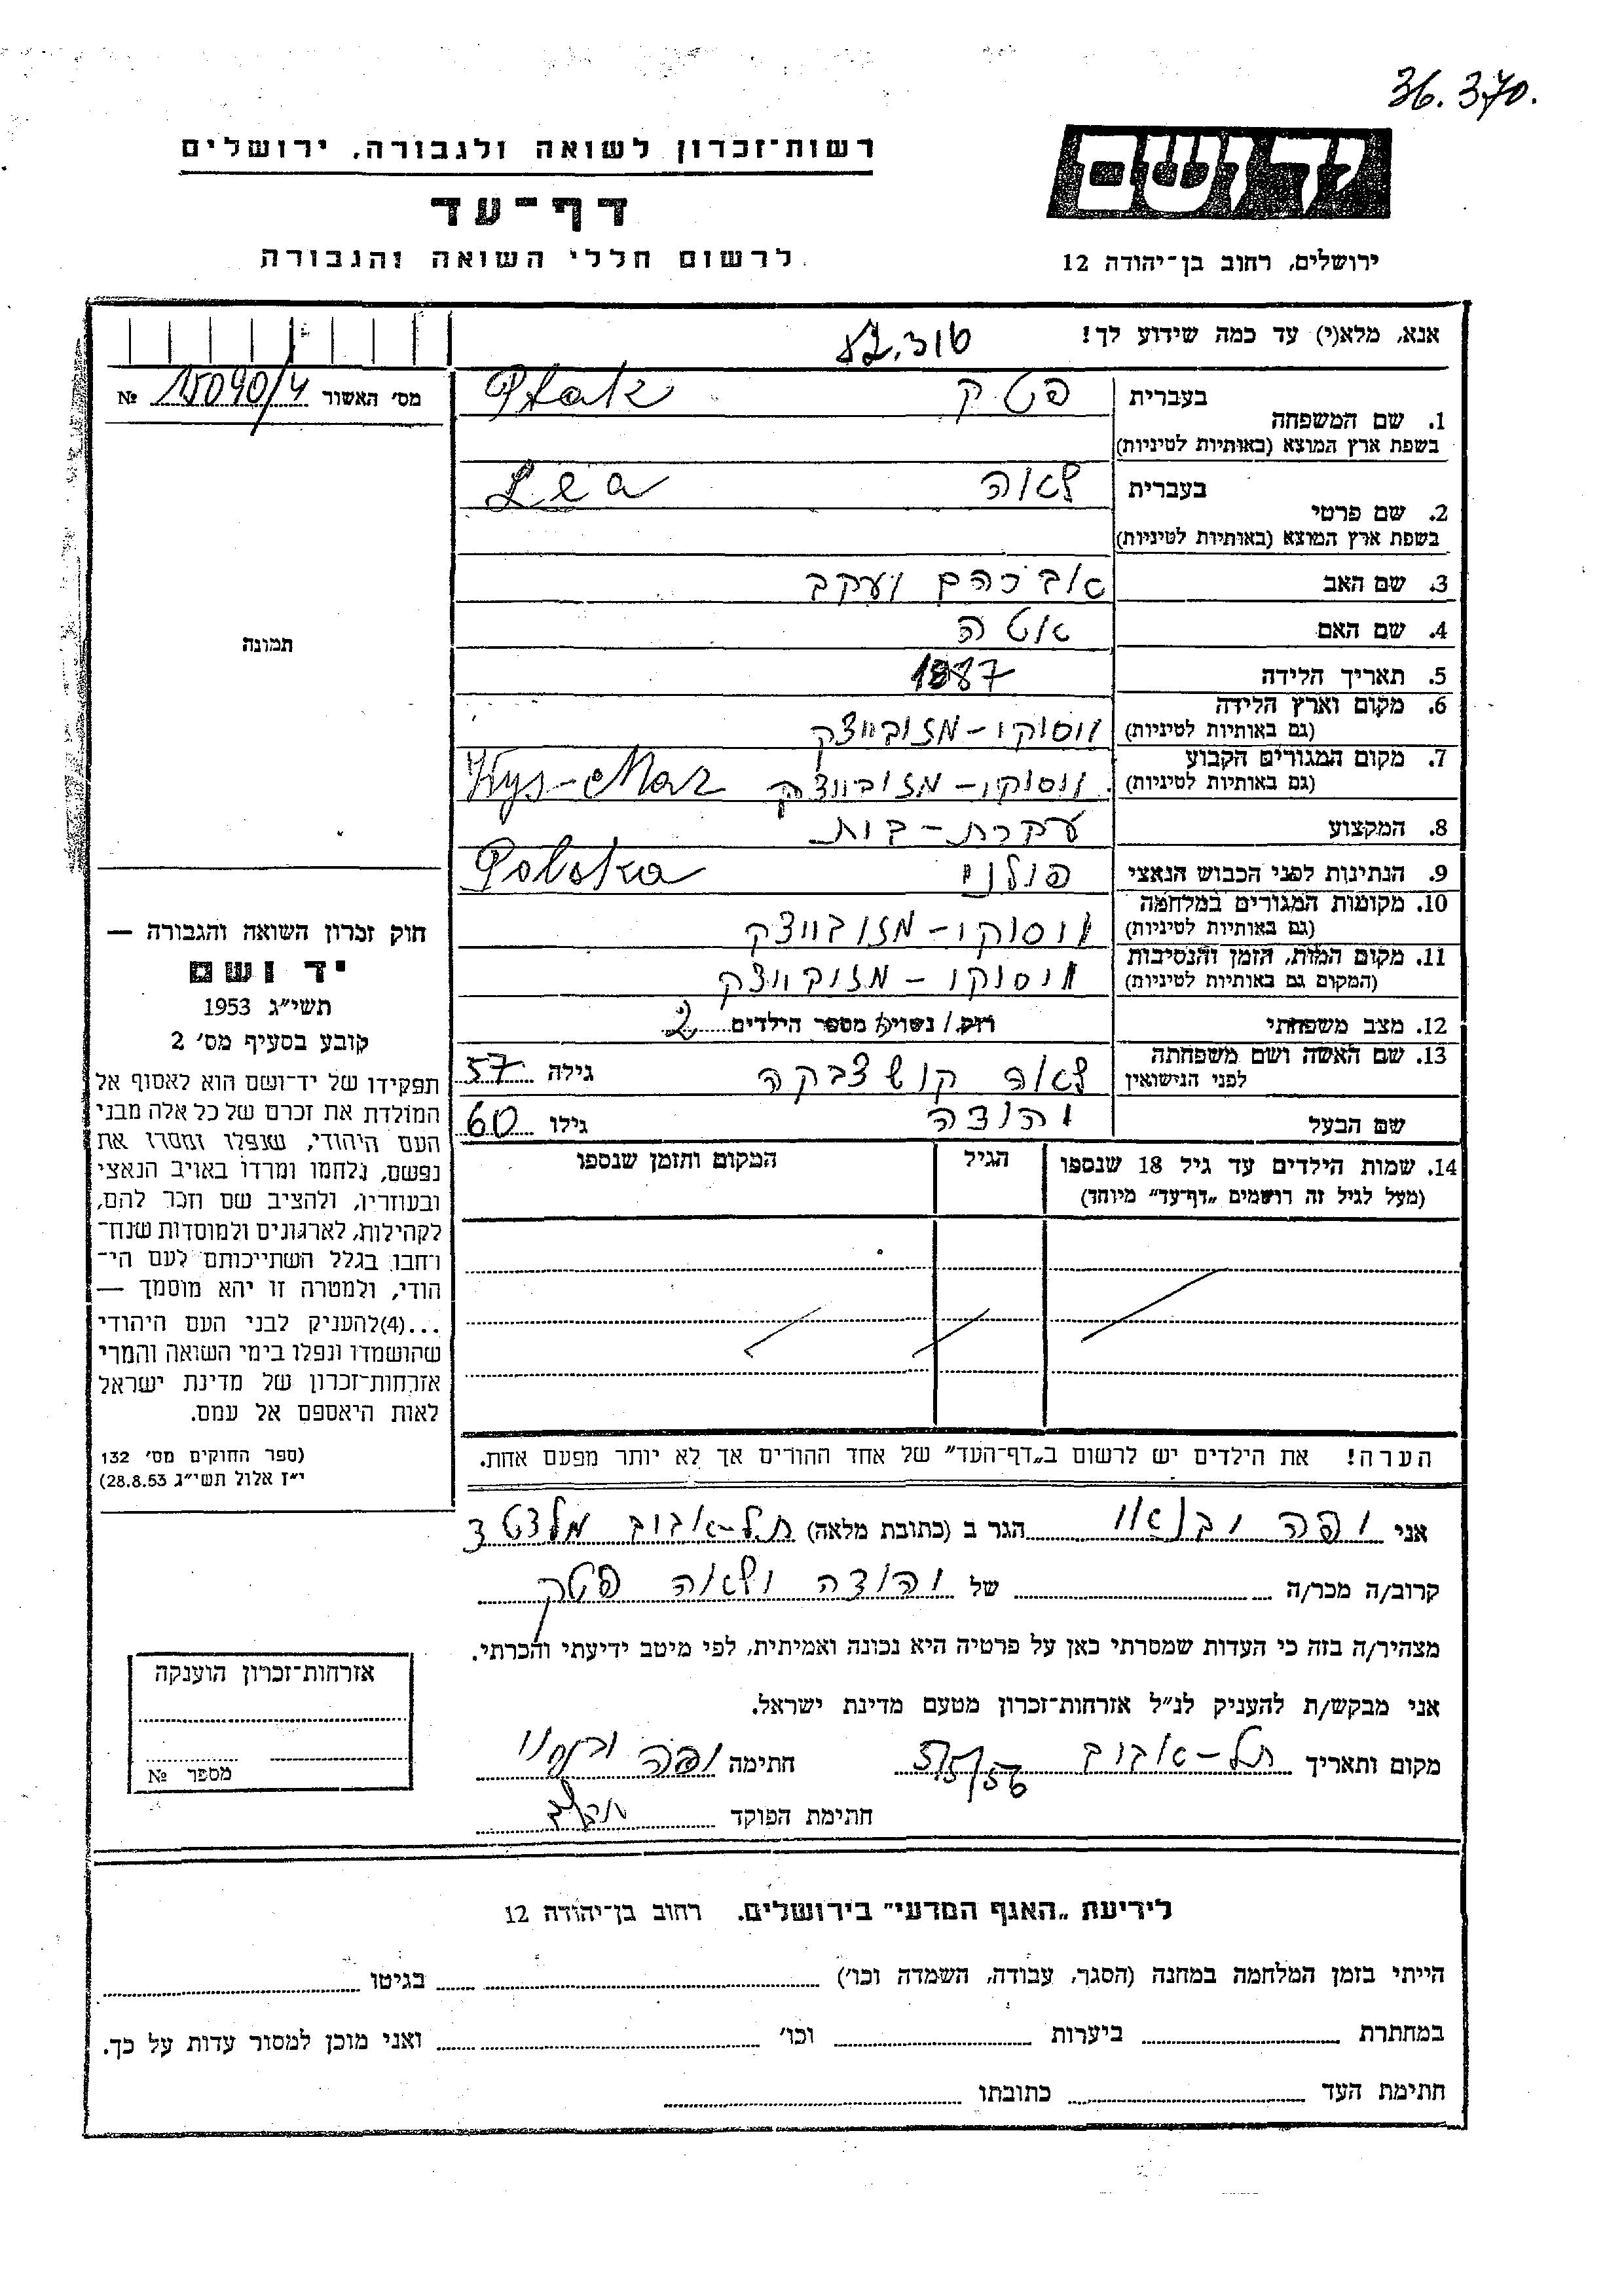 36.370.
רשות־זכרון לשואה ולגבורה, ירושלים
ידושם
דף־עד
לרשום חללי השואה והגבורה
ירושלים, רחוב בן־יהודה 12
אנא, מלא(י) עד כמה שידוע לך!
מס׳ האשור 15090/4 №
1. שם המשפחה
בעברית פטק Ptak
בשפת ארץ המוצא (באותיות לטיניות)
2. שם פרטי
בעברית לאה Lea
בשפת ארץ המוצא (באותיות לטיניות)
3. שם האב אברהם יעקב
4. שם האם אטה
תמונה
5. תאריך הלידה 1887
6. מקום וארץ הלידה
(גם באותיות לטיניות) ויסוקי-מזוביצק
7. מקום המגורים הקבוע
(גם באותיות לטיניות) ויסוקי-מזוביצק Wys-Maz
8. המקצוע עקרת-בית
9. הנתינות לפני הכבוש הנאצי פולני Polska
10. מקומות המגורים במלחמה
(גם באותיות לטיניות) ויסוקי-מזוביצק
11. מקום המות, הזמן והנסיבות
(המקום גם באותיות לטיניות) ויסוקי-מזוביצק
12. מצב משפחתי רוק/נשוי/א מספר הילדים 2
13. שם האשה ושם משפחתה
לפני הנישואין לאה גילה 57
שם הבעל יהודה גילו 60
14. שמות הילדים עד גיל 18 שנספו
(מעל לגיל זה רושמים „דף־עד” מיוחד)
הגיל
המקום והזמן שנספו
הערה! את הילדים יש לרשום ב„דף־העד” של אחד ההורים אך לא יותר מפעם אחת.
חוק זכרון השואה והגבורה —
יד ושם
תשי״ג 1953
קובע בסעיף מס׳ 2
תפקידו של יד־ושם הוא לאסוף אל
המולדת את זכרם של כל אלה מבני
העם היהודי, שנפלו ומסרו את
נפשם, נלחמו ומרדו באויב הנאצי
ובעוזריו, ולהציב שם וזכר להם,
לקהילות, לארגונים ולמוסדות שנח־
רחבו בגלל השתייכותם לעם הי־
הודי, ולמטרה זו יהא מוסמך —
...(4)להעניק לבני העם היהודי
שהושמדו ונפלו בימי השואה והמרי
אזרחות־זכרון של מדינת ישראל
לאות היאספם אל עמם.
(ספר החוקים מס׳ 132
י״ז אלול תשי״ג 28.8.53)
אני יפה הגר ב (כתובת מלאה) תל-אביב
קרוב/ה מכר/ה של יהודה ולאה פטק
מצהיר/ה בזה כי העדות שמסרתי כאן על פרטיה היא נכונה ואמיתית, לפי מיטב ידיעתי והכרתי.
אני מבקש/ת להעניק לנ״ל אזרחות־זכרון מטעם מדינת ישראל.
מקום ותאריך תל-אביב 5/5/56 חתימה יפה
חתימת הפוקד
אזרחות־זכרון הוענקה
מספר №
לידיעת „האגף המדעי” בירושלים. רחוב בן־יהודה 12
הייתי בזמן המלחמה במחנה (הסגר, עבודה, השמדה וכו׳) בגיטו
במחתרת ביערות וכו׳ ואני מוכן למסור עדות על כך.
חתימת העד כתובתו